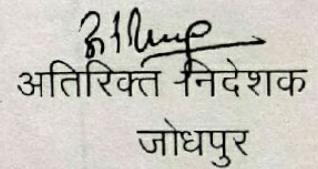 अतिरिक्त निदेशक
जोधपुर